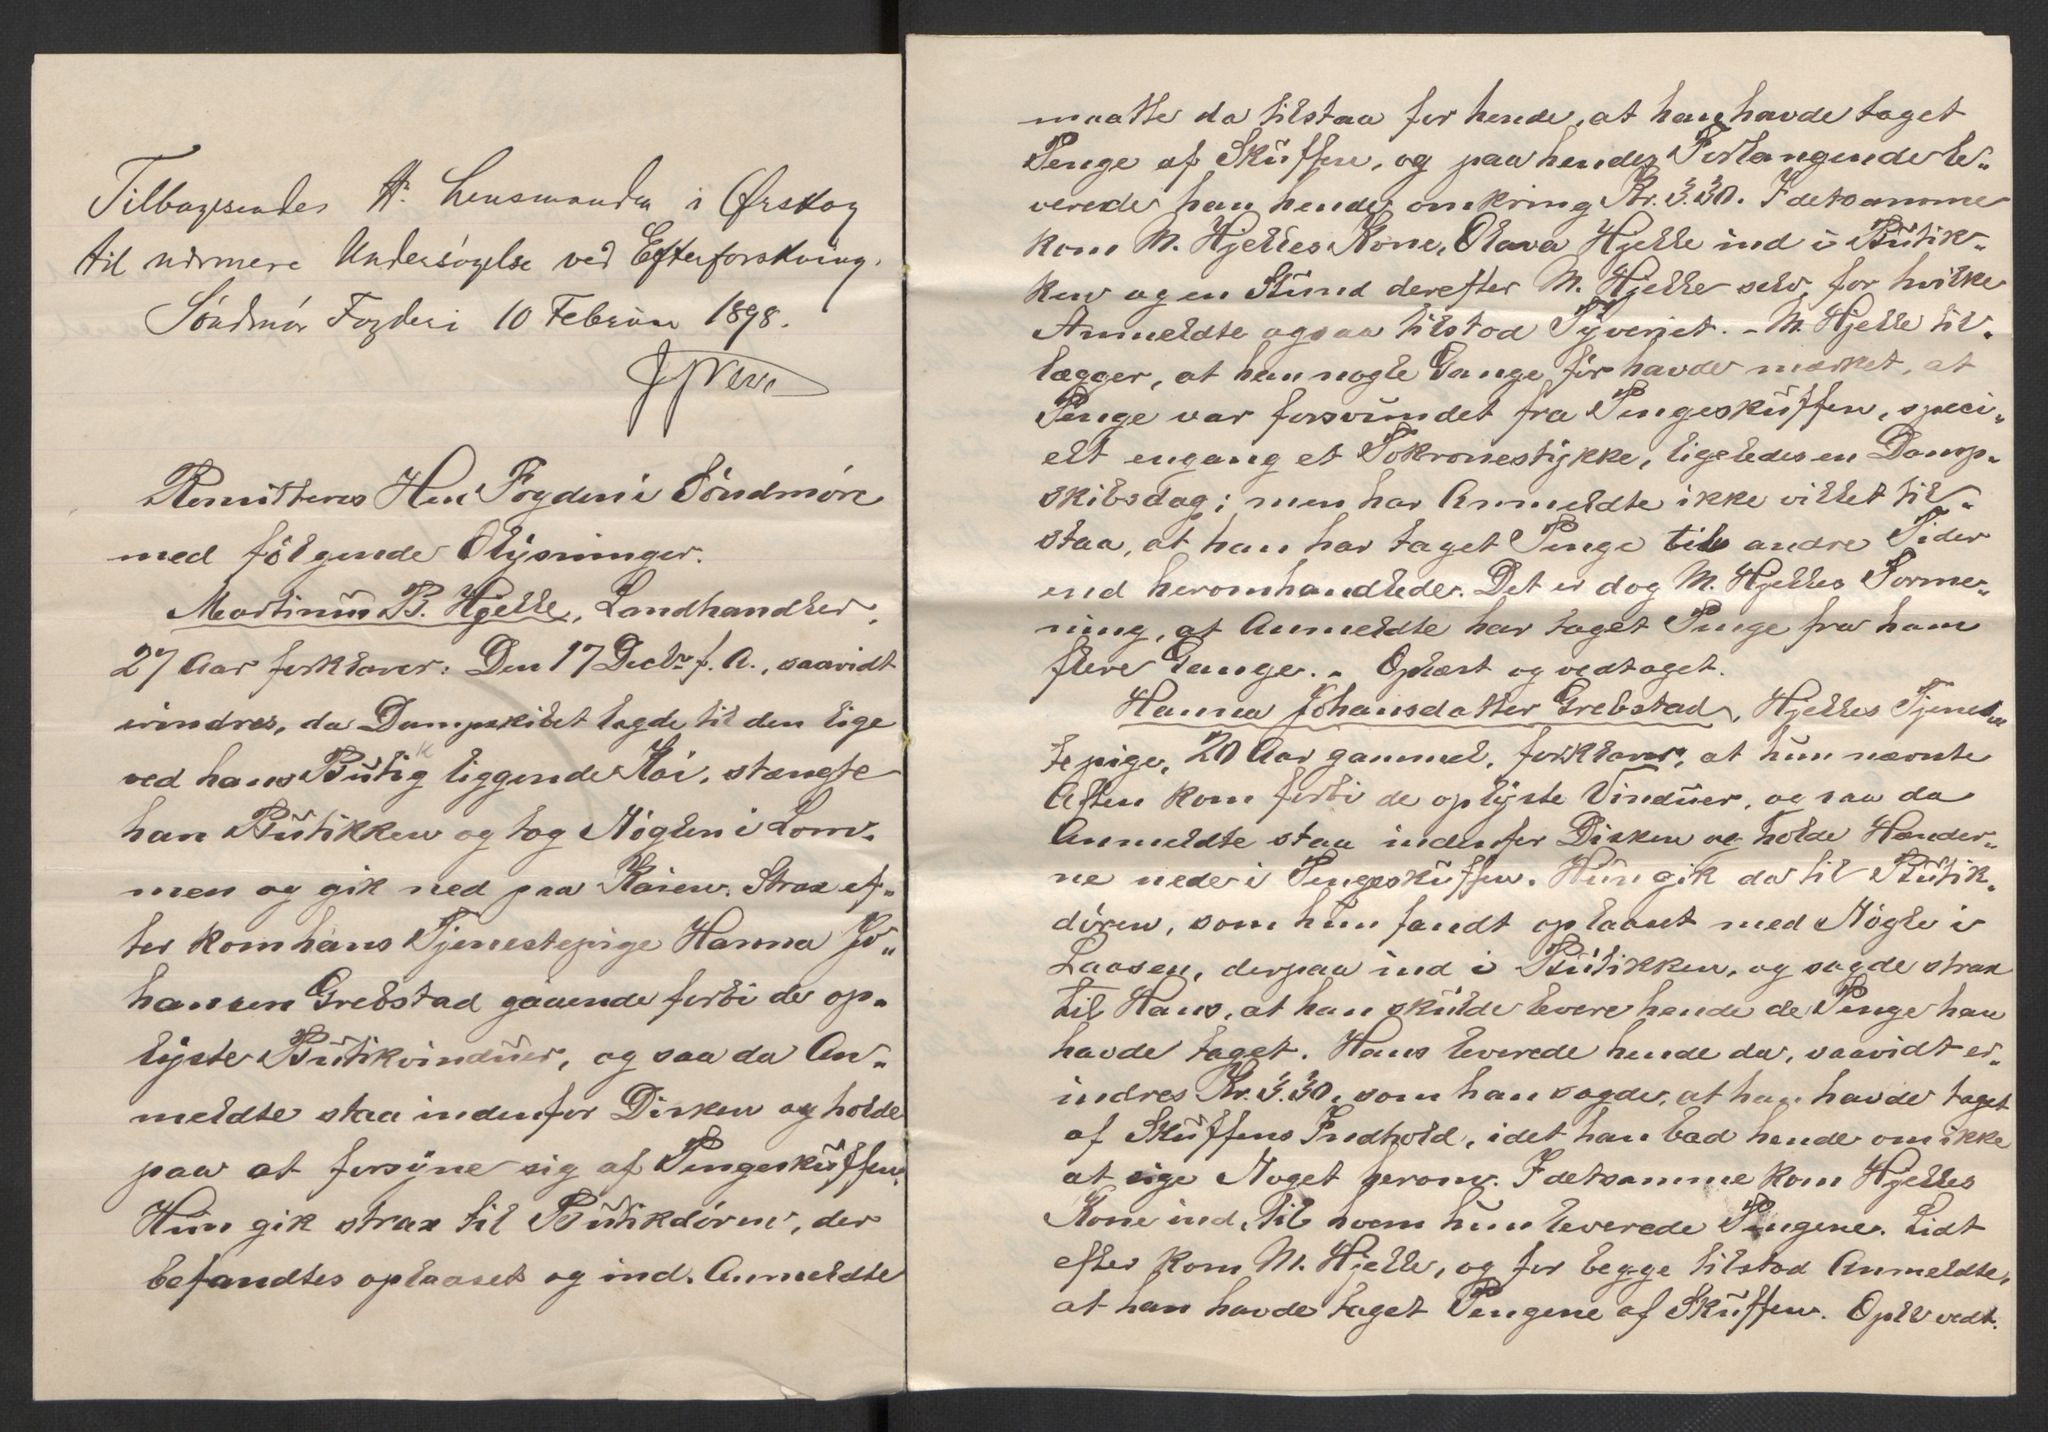 Tilbagesendes Hr. Lensmanden i Ørskog
til nærmere Undersøgelse ved Efterforskning.
Søndmør Fogderi 10 Februar 1898.
Remitteres Herr Fogden i Søndmøre
med følgende Olysninger.
Martinus B. Hjelle, Landhandler,
27 Aar forklarer: Den 17 Decbr f. A., saavidt
erindres, da Dampskibet lagde til den lige
ved hans Butig k liggende Kai, stængte
han Butikken og tog Nøglen i Lom-
men og gik ned paa Kaien. Strax ef-
ter kom hans Tjenestepige Hanna Jo-
hansen Grebstad gaaende forbi de op-
lyste Butikvinduer, og saa da An-
meldte staa indenfor Disken og holde
paa at forsyne sig af Pengeskuffen.
Hun gik strax til Butikdøren, der
befandtes oplaaset og ind. Anmeldte
maatte da tilstaa for hende, at han havde taget
Penge af Skuffen, og paa hendes Forlangende le-
verede han hende omkring Kr. 3.30. I detsamme
kom M. Hjelles Kone, Olava Hjelle ind i Butik-
ken og en Stund derefter M. Hjelle selv, for hvilke
Anmeldte ogsaa tilstod Tyveriet. - M. Hjelle til-
lægger, at han nogle Gange før havde mærket, at
Penge var forsvundet fra Pengeskuffen, speci-
elt engang et Tokronestykke, ligeledes en Damp-
skibsdag; men har Anmeldte ikke villet til-
staa, at han har taget Penge til andre Tider
end heromhandlede. Det er dog M. Hjelles Forme-
ning, at Anmeldte har taget Penge fra ham
flere Gange. - Oplæst og vedtaget.
Hanna Johansdatter Grebstad, Hjelles Tjenes
tepige, 20 Aar gammel, forklarer, at hun nævnte
Aften kom forbi de oplyste Vinduer, og saa da
Anmeldte staa indenfor Disken og holde Hænder-
ne nede i Pengeskuffen. Hun gik da til Butik-
døren, som hun fandt oplaaset med Nøgle i
Laasen, derpaa ind i Butikken, og sagde strax
til Hans, at han skulde levere hende de Penge han
havde taget. Hans leverede hende da, saavidt er-
indres Kr. 3.30, som han sagde, at han havde taget
af Skuffens Indhold, idet han bad hende om ikke
at sige Noget herom. I detsamme kom Hjelles
Kone ind, til hvem hun leverede Pengene. Lidt
efter kom M. Hjelle, og for begge tilstod Anmeldte,
at han havde taget Pengene af Skuffen. Opl. vedt.